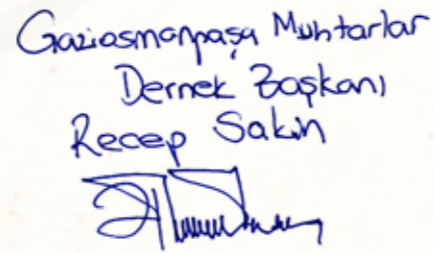 Gaziosmanpaşa Muhtarlar
Dernek Başkanı
Recep Sakin